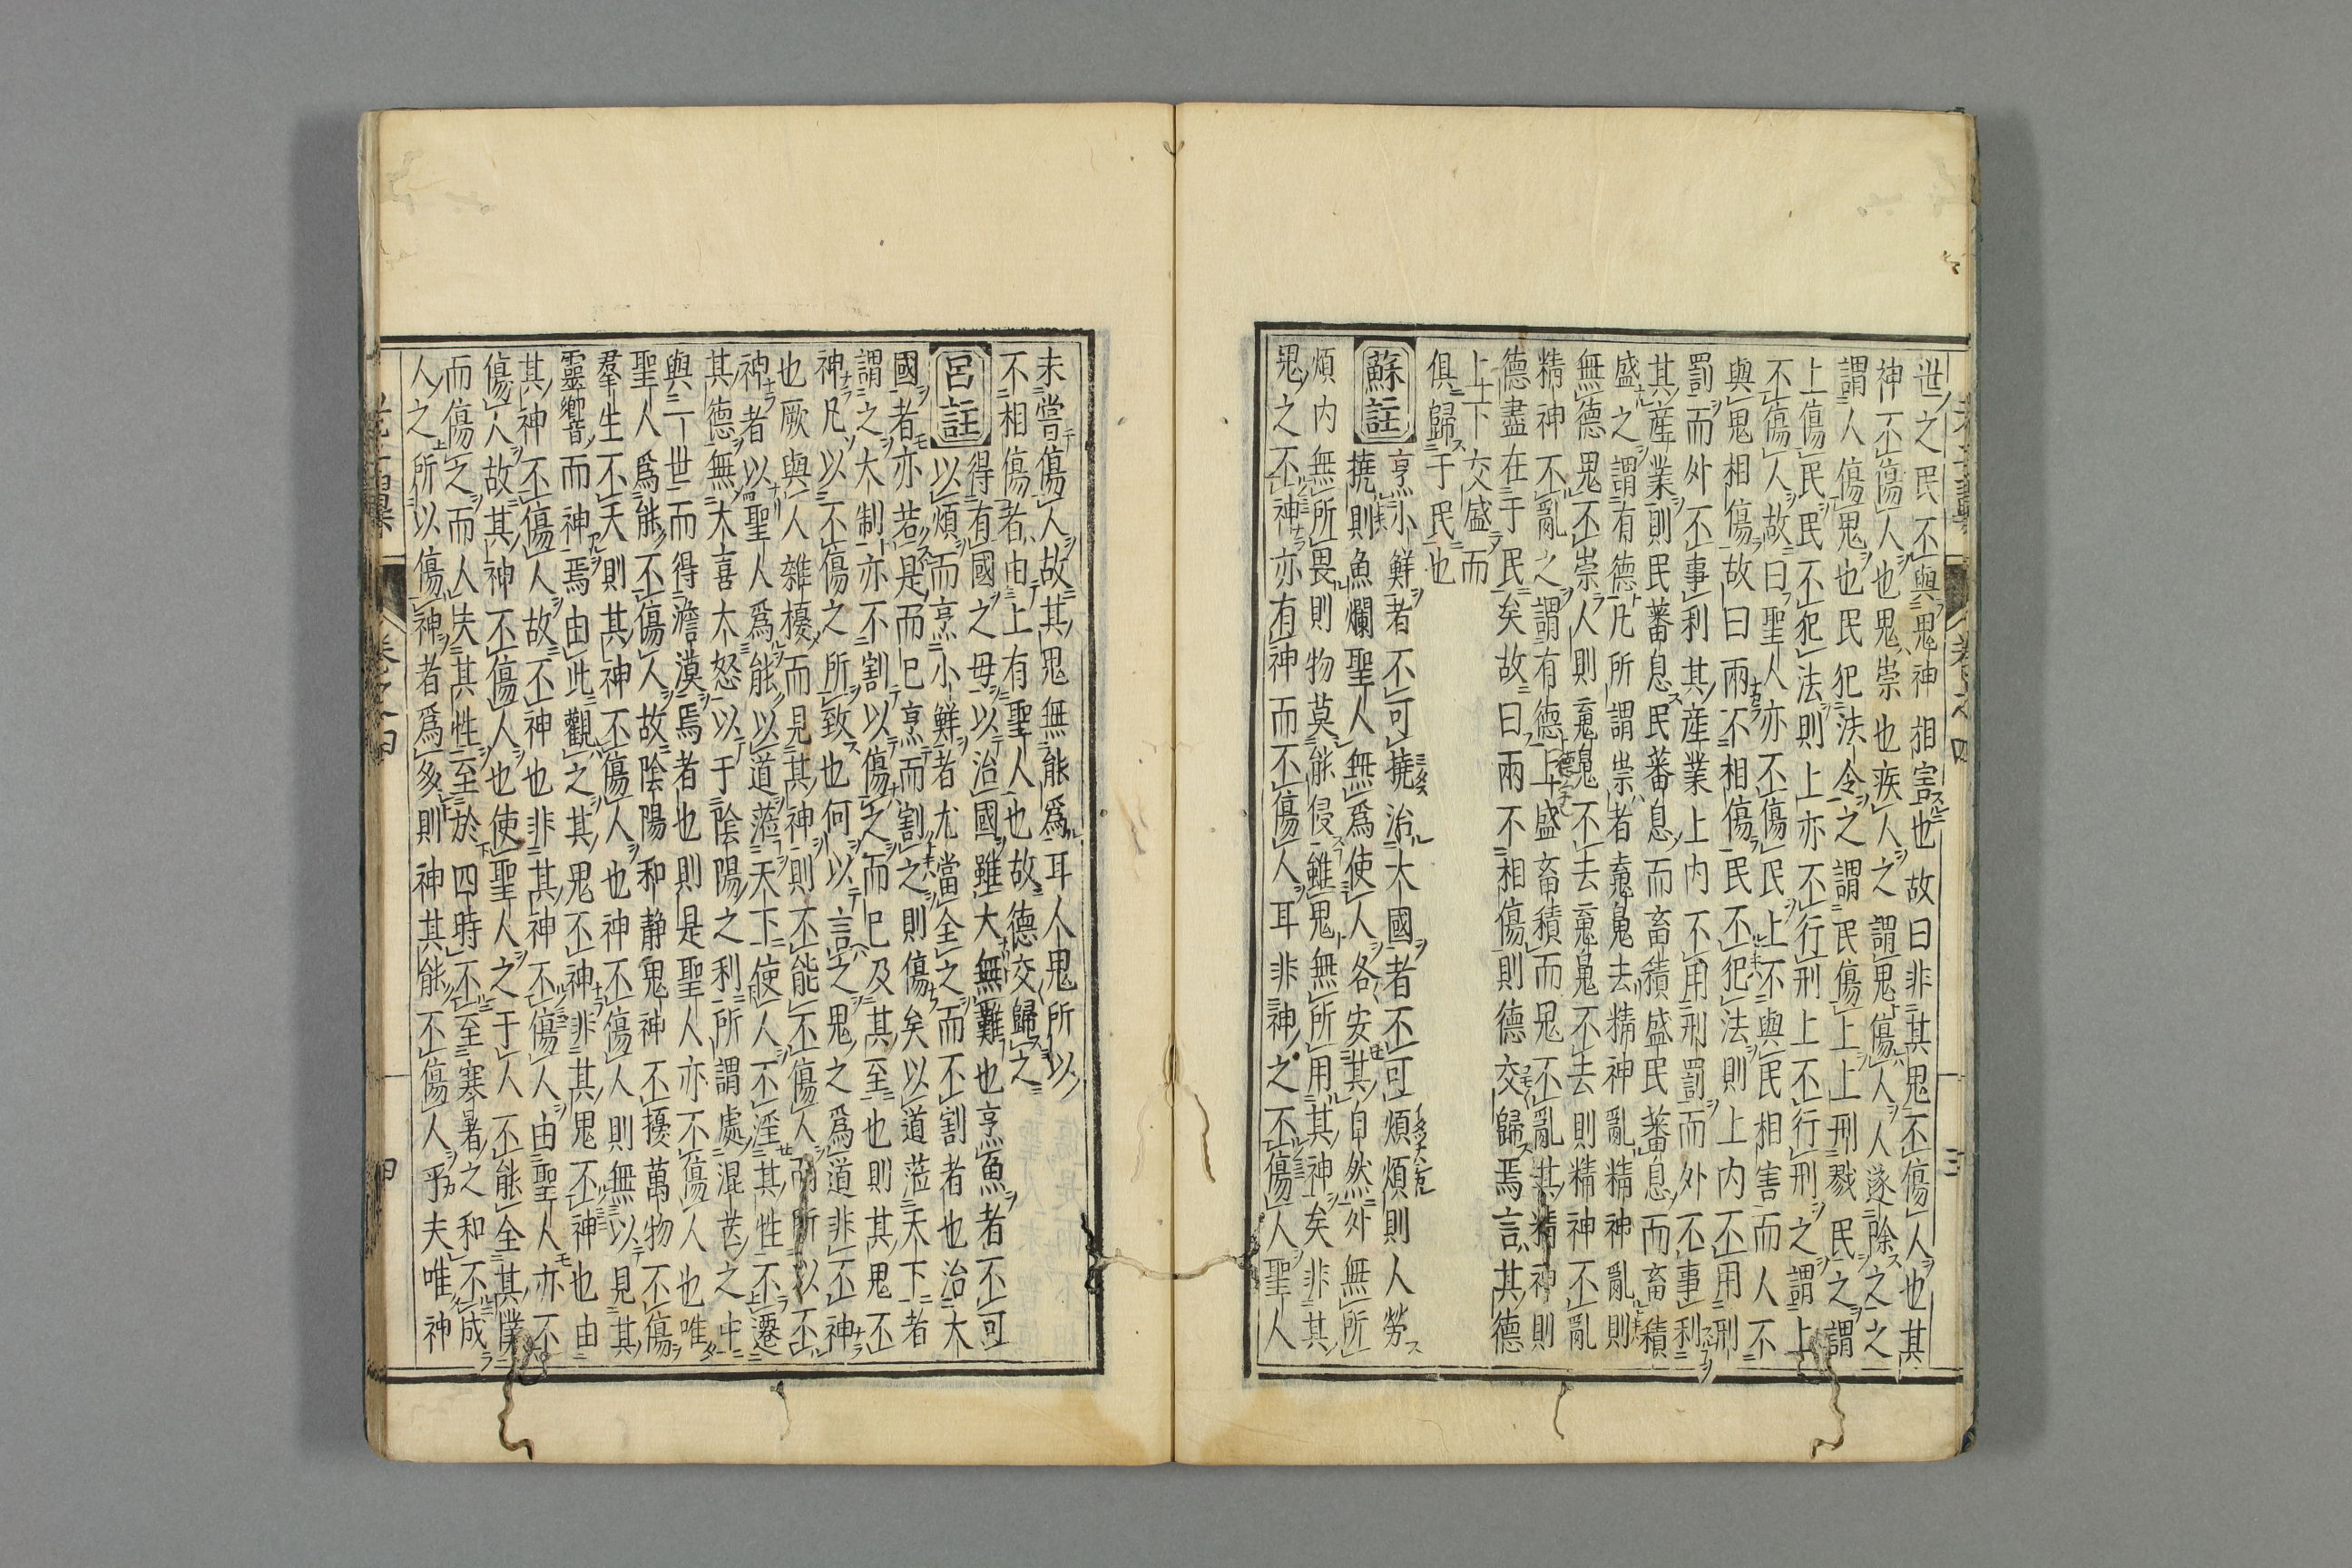 世之民不與鬼神相害也故曰非其鬼不傷人也其
神不傷人也鬼祟也疾人之謂鬼傷人人逐除之之
謂人傷鬼也民犯法令之謂民傷上上刑戮民之謂
上傷民民不犯法則上亦不行刑上不行刑之謂上
不傷人故曰聖人亦不傷民上不與民相害而人不
與鬼相傷故曰兩不相傷民不犯法則上內不用刑
罰而外不事利其產業上內不用刑罰而外不事利
其產業則民蕃息民蕃息而畜積盛民蕃息而畜積
盛之謂有德凡所謂祟者䰟鬼去精神亂精神亂則
無德鬼不祟人則䰟鬼不去䰟鬼不去則精神不亂
精神不亂之謂有德上盛畜積而鬼不亂其精神則
德盡在于民矣故曰兩不相傷則德交歸焉言其德
上下交盛而
俱歸于民也
蘇註
烹小鮮者不可撓治大國者不可煩煩則人勞
撓則魚爛聖人無為使人各安其自然外無所
煩內無所畏則物莫能侵雖鬼無所用其神矣非其
鬼之不神亦有神而不傷人耳非神之不傷人聖人
未嘗傷人故其鬼無能為耳人鬼所以
不相傷者由上有聖人也故德交歸之
呂註
得有國之毋以治國雖大無難也烹魚者不可
以煩而烹小鮮者尤當全之而不割者也治大
國者亦若是而已烹而割之則傷矣以道蒞天下者
謂之大制亦不割以傷之而已及其至也則其鬼不
神凡以不傷之所致也何以言之鬼之為道非不神
也厥與人雜擾而見其神則不能不傷人而所以不
神者以聖人為能以道蒞天下使人不淫其性不遷
其德無大喜大怒以于陰陽之利所謂處混芒之中
與一世而得澹漠焉者也則是聖人亦不傷人也唯
聖人為能不傷人故陰陽和静鬼神不擾萬物不傷
羣生不夭則其神不傷人也神不傷人則無以見其
靈響而神焉由此觀之其鬼不神非其鬼不神也由
其神不傷人故不神也非其神不傷人由聖人亦不
傷人故其神不傷人也使聖人之于人不能全其僕
而傷之而人失其性至於四時不至寒暑之和不成
人之所以傷神者為多則神其能不傷人乎夫唯神